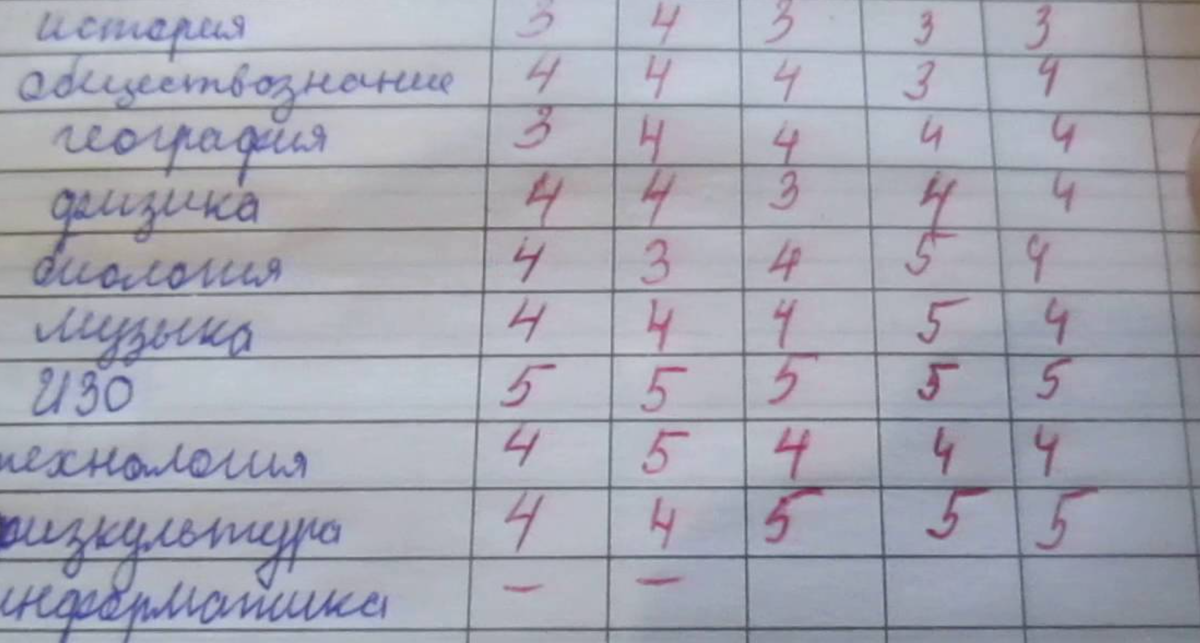 история 3 4 3 3 3
обществознание 4 4 4 3 4
география 3 4 4 4 4
физика 4 4 3 4 4
биология 4 3 4 5 4
музыка 4 4 4 5 4
ИЗО 5 5 5 5 5
технология 4 5 4 4 4
физкультура 4 4 5 5 5
информатика – –